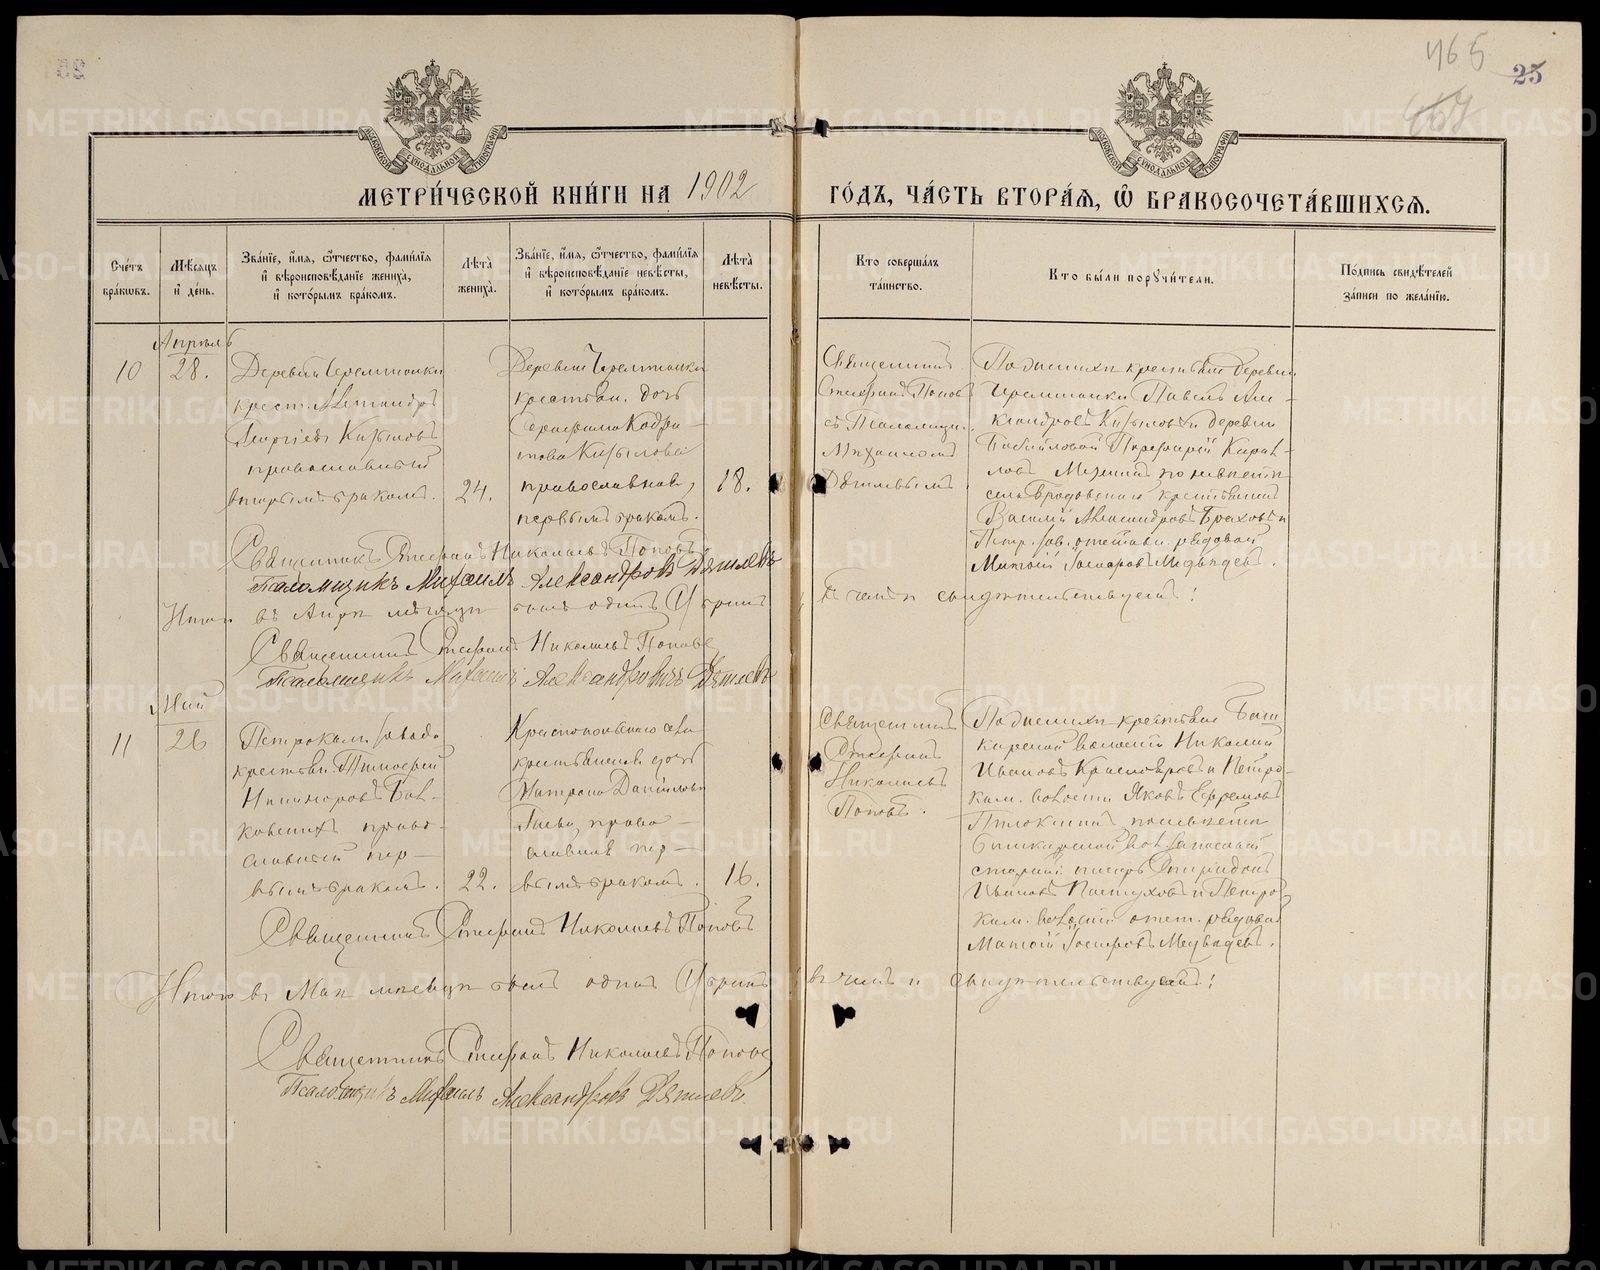 465
25
МЕТРИ́ЧЕСКОЙ КНИ́ГИ НА 1902 ГО́ДЪ, ЧА́СТЬ ВТОРА́Ѧ, Ѽ БРАКОСОЧЕТА́ВШИХСѦ.
Сче́тъ бра́кѡвъ.
Мѣ́сѧцъ и́ де́нь.
Зва́нїе, и́мѧ, ѻ́тчество, фами́лїѧ и́ вѣроисповѣ́данїе жениха̀, и́ кото́рымъ бра́комъ.
Лѣ́та̀ жениха̀.
Зва́нїе, и́мѧ, ѻ́тчество, фами́лїѧ и́ вѣроисповѣ́данїе невѣ́сты, и́ кото́рымъ бра́комъ.
Лѣ́та̀ невѣ́сты.
Кто соверша́лъ та́инство.
Кто бы́ли порꙋчи́тели.
По́дпись свидѣ́телей за́писи по жела́нїю.
Апрѣль
10
28.
Деревни Черемшанки
крест. Александръ
Георгіевъ Казыловъ
православный
вторымъ бракомъ.
24.
Деревни Черемшанки
крестьян. дочь
Серафима Кодра-
това Казылова
православная,
первымъ бракомъ.
18.
Священникъ
Стефанъ Поповъ
съ Псаломщик.
Михаиломъ
Дягилевымъ
По женихѣ крестьяне деревни
Черемшанки Павелъ Але-
ксандровъ Казыловъ и деревни
по невѣстѣ
села Бродовскаго крестьянинъ
Василій Александровъ
рядовой
Медвѣдевъ.
Священникъ Стефанъ Николаевъ Поповъ
Псаломщикъ Михаилъ Александровъ Дягилевъ
Итого въ Апрѣлѣ мѣсяцѣ былъ одинъ (1) бракъ,
въ чемъ и свидѣтельствуемъ:
Священникъ Стефанъ Николаевъ Поповъ
Псаломщикъ Михаилъ Александровичъ Дягилевъ
Май
11
26
Петрокам. завода
крестьян. Тимофей
Никаноровъ
право-
славный пер-
вымъ бракомъ.
22.
села
крестьянская дочь
Матрона Данилова
право-
славная пер-
вымъ бракомъ.
16.
Священникъ
Стефанъ
Николаевъ
Поповъ.
По женихѣ крестьяне Баш-
карской волости Николай
Ивановъ и Петро-
кам. волости Яковъ Ефремовъ
по невѣстѣ
Башкарской вол. запасный
старшій писарь Спиридонъ
Ивановъ Пастуховъ и Петро-
кам. волости рядовой
Медвѣдевъ.
Священникъ Стефанъ Николаевъ Поповъ
Итого въ Маѣ мѣсяцѣ былъ одинъ (1) бракъ,
въ чемъ и свидѣтельствуемъ:
Священникъ Стефанъ Николаевъ Поповъ
Псаломщикъ Михаилъ Александровъ Дягилевъ.
METRIKI.GASO-URAL.RU